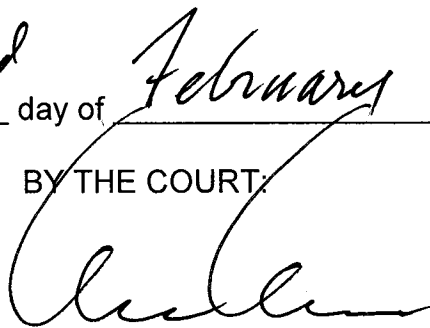 day of February
BY THE COURT: